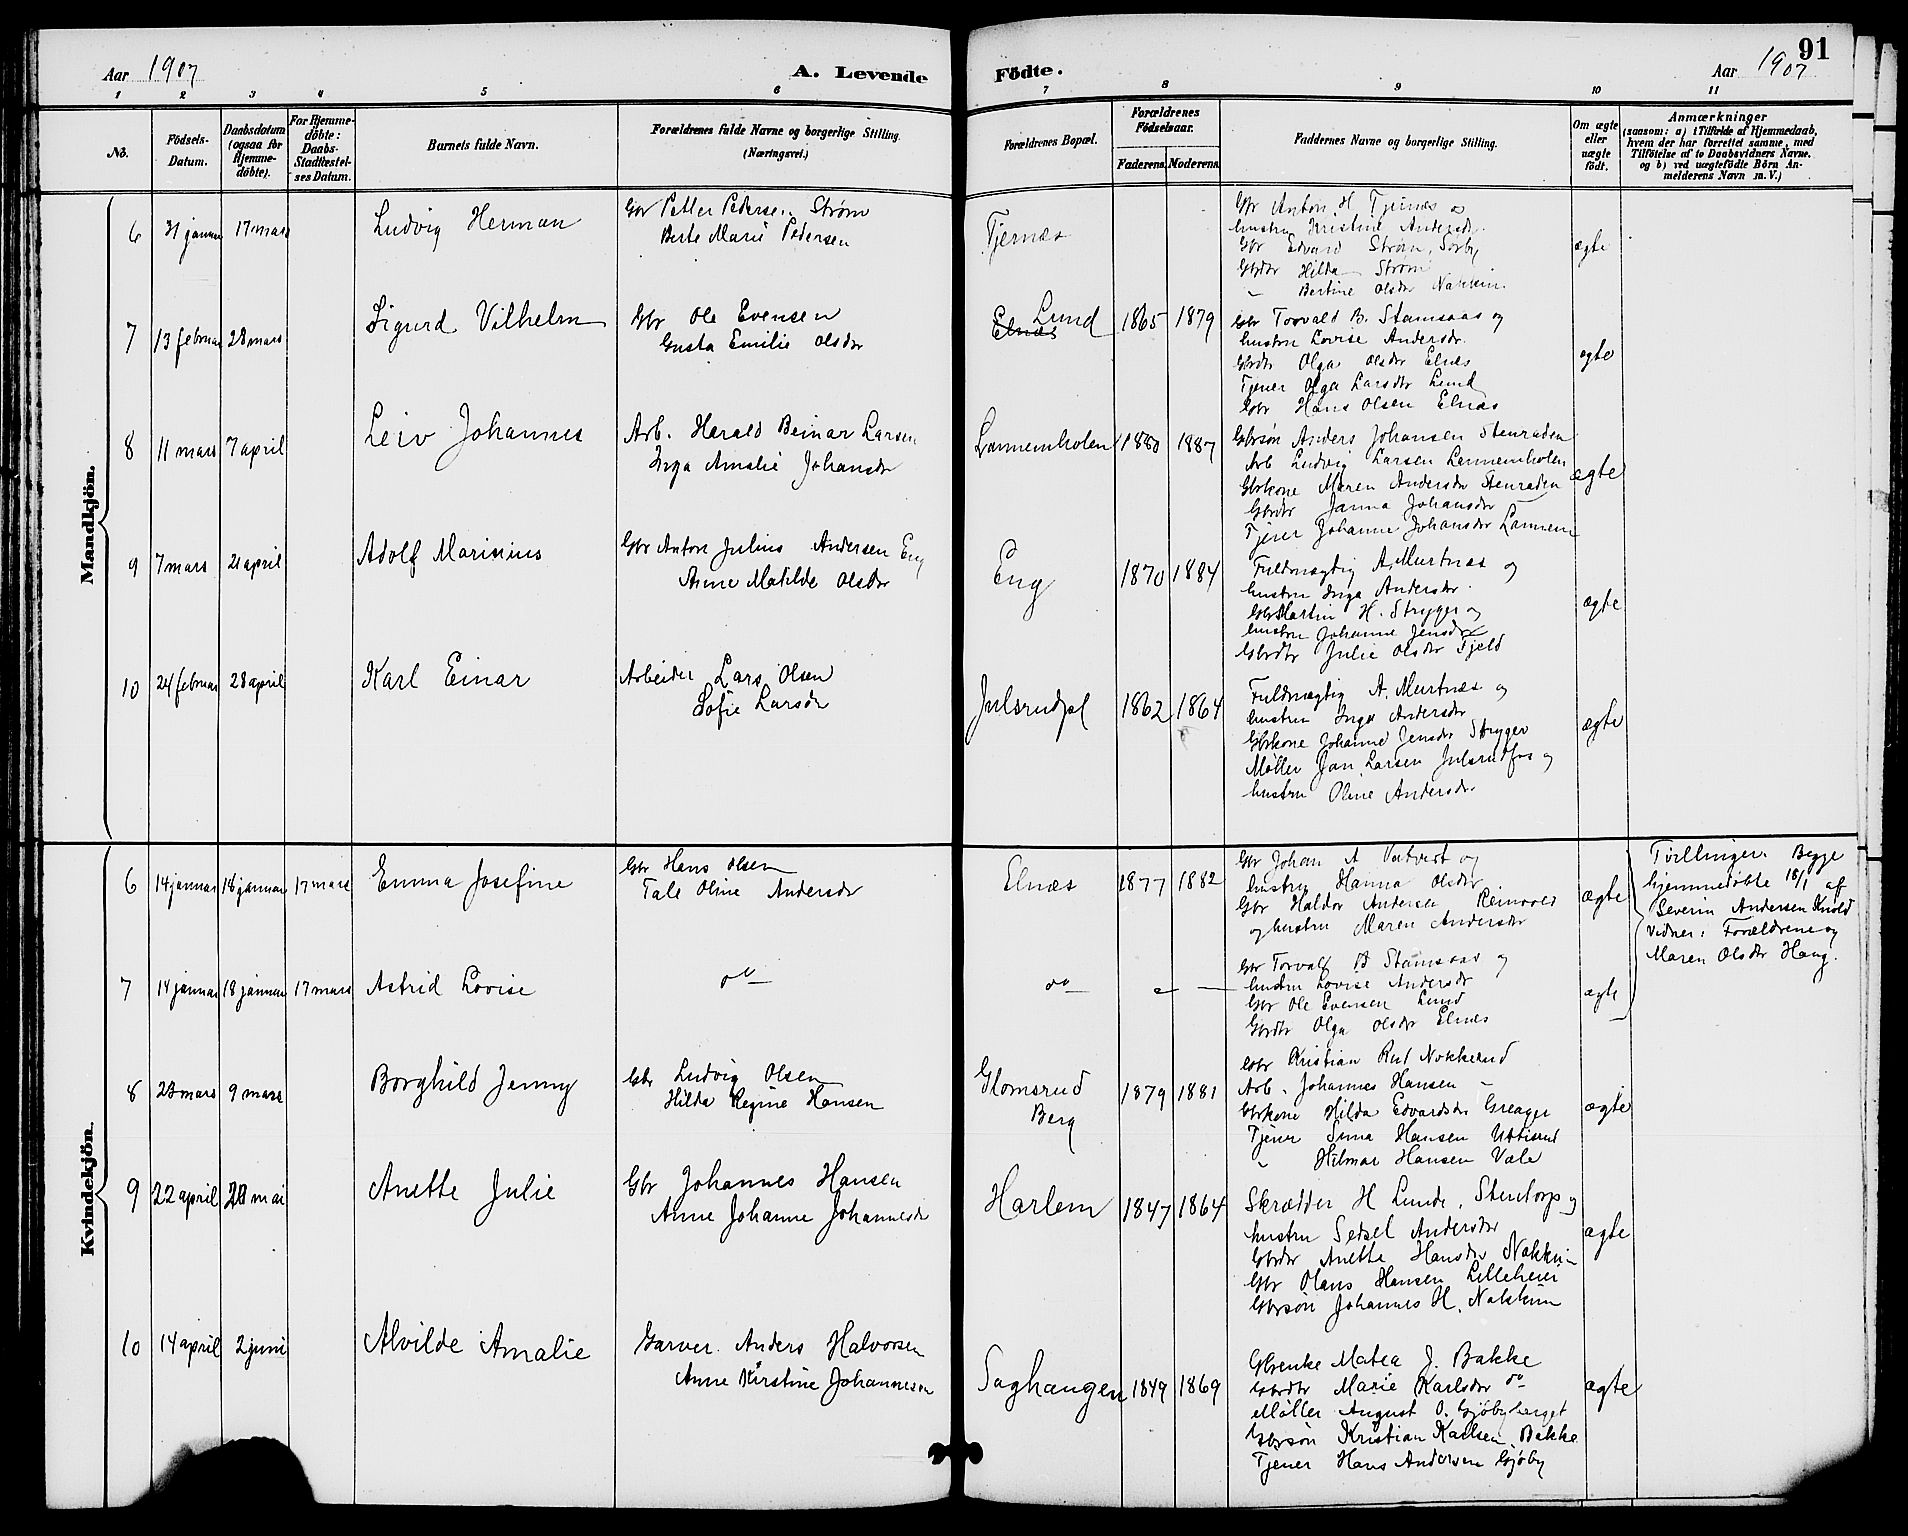 Aar 1907 A. Levende
Födte. Aar 1907 91
1 2 3 4 5 6 7 8 9 10 11
No.
Födsels-Datum.
Daabsdatum (ogsaa for Hjemme-döbte).
For Hjemme-döbte: Daabs-Stadfæstel-ses Datum.
Barnets fulde Navn.
Forældrenes fulde Navne og borgerlige Stilling. (Næringsvei.)
Forældrenes Bopæl.
Forældrenes Födselsaar.
Faderens. Moderens.
Faddernes Navne og borgerlige Stilling.
Om ægte eller uægte födt.
Anmærkninger (saasom: a) i Tilfælde af Hjemmedaab, hvem der har forrettet samme, med Tilföielse af to Daabsvidners Navne, og b) ved uægtefödte Börn An-melderens Navn m. V.)
Mandkjön.
6 31 januar 17 mars Ludvig Herman Gbr Petter Pedersen Strøm
Berte Marie Pedersen
Tjernæs
Gbr Anton H. Tjernæs og
hustru Kristine Andersdr.
Gbr Edvard Strøm, Sorby
Gbrdtr Hilda Strøm
" Bertine Olsdtr Nakkim
ægte
7 13 februar 28 mars Sigurd Vilhelm Gbr Ole Evensen
Gusta Emilie Olsdtr
Elnæs Lund 1865 1879
Gbr Torvald B. Stamsaas og
hustru Lovise Andersdr.
Gbrdtr Olga Olsdtr Elnæs
Tjener Olga Larsdtr Lund
Gbr Hans Olsen Elnæs
ægte
8 11 mars 7 april Leiv Johannes Arb. Harald Beinar Larsen
Inga Amalie Johansdr
Lannemholen 1880 1887
Gbrsøn Anders Johansen Stenraden
Arb Ludvig Larsen Lannemholen
Gbrkone Maren Andersdr Stenraden
Gbrdtr Janna Johansdtr
Tjener Johanne Johansdr Lannem
ægte
9 7 mars 21 april Adolf Marinius Gbr Anton Julius Andersen Eng
Anne Matilde Olsdtr
Eng 1870 1884
Fuldmægtig A. Murtnæs og
hustru Inga Andersdr.
Gbr Martin H. Strygger og
hustru Johanne Jensdtr
Gbrdtr Julie Olsdtr Fjeld
ægte
10 24 februar 28 april Karl Einar Arbeider Lars Olsen
Sofie Larsdr
Julsrudpl 1862 1864
Fuldmægtig A. Murtnæs og
hustru Inga Andersdtr
Gbrkone Johanne Jensdr Strygger
Møller Jan Larsen Julsrudfos og
hustru Oline Andersdr
ægte
Kvindekjön.
6 14 januar 18 januar 17 mars Emma Josefine Gbr Hans Olsen
Tale Oline Andersdr
Elnæs 1877 1882
Gbr Johan A og
hustru Hanna Olsdtr
Gbr Haldor Andersen
og hustru Maren Andersdtr
ægte
Tvillinger. Begge
hjemmedøbte 18/1 af
Severin Andersen Knold
Vidner: Forældrene og
Maren Olsdtr Haug.
7 14 januar 18 januar 17 mars Astrid Lovise do
do
Gbr Torvald B Stamsaas og
hustru Lovise Andersdr
Gbr Ole Evensen Lund
Gbrdtr Olga Olsdtr Elnæs
ægte
8 23 mars 9 mars Borghild Jenny Gbr Ludvig Olsen
Hilda Regine Hansen
Glomsrud
Berg
1879 1881
Gbr Kristian Nokkerud
Arb. Johannes Hansen "
Gbrkone Hilda Edvardsdr Greager
Tjener Hansen
" Hilmar Hansen Vale
ægte
9 22 april 20 mai Anette Julie Gbr Johannes Hansen
Anne Johanne Johannesdr
Harlem 1847 1864
Skrædder H Lunde, Stentorp og
hustru Sedsel Andersdtr
Gbrdtr Anette Hansdtr Nakkim
Gbr Olaus Hansen Lilleheier
Gbrsøn Johannes H. Nakkim
ægte
10 14 april 2 juni Alvilde Amalie Garver Anders Halvorsen
Anne Kirstine Johannesen
Saghaugen 1849 1869
Gbrenke Matea J. Bakke
Gbrdtr Marie Karlsdtr do
Møller August O. Gjøbyberget
Gbrsøn Kristian Karlsen Bakke
Tjener Hans Andersen Gjøby
ægte